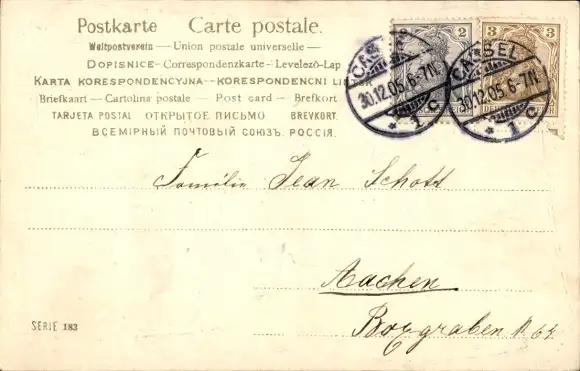 Postkarte Carte postale.
Weltpostverein — Union postale universelle —
DOPISNICE - Correspondenzkarte - Levelezò-Lap
KARTA KORESPONDENCYJNA - KORESPONDENCNI LI
Briefkaart - Cartolina postale - Post card - Brefkort
TARJETA POSTAL ОТКРЫТОЕ ПИСЬМО. BREVKORT.
ВСЕМІРНЫЙ ПОЧТОВЫЙ СОЮЗЪ. РОССІЯ.
2 3
CASSEL
30.12.05.6-7N.
* 1 c
CASSEL
30.12.05.6-7N.
* 1 c
Familie Jean Schott
Aachen
Boxgraben N 64.
SERIE 183